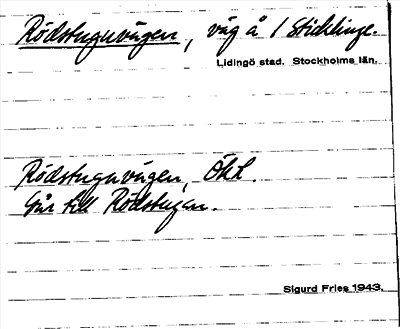 Rödstuguvägen, väg å 1 Sticklinge.
Lidingö stad. Stockholms län.
Rödstuguvägen, Ökl.
Går till Rödstugan.
Sigurd Fries 1943.